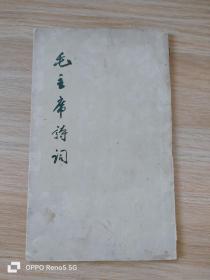 毛主席詩詞
OPPO Reno5 5G